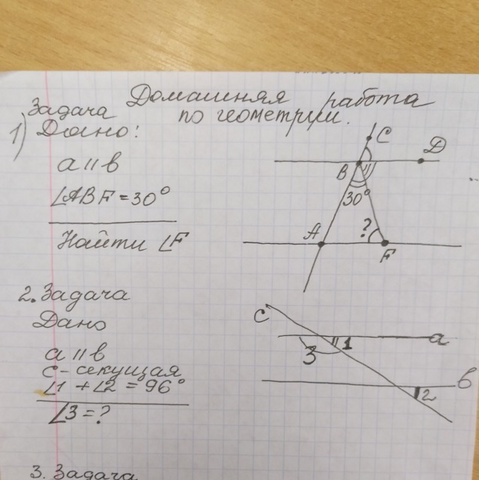 Домашняя работа
по геометрии.
Задача
1) Дано:
a || b
∠ABF = 30°
Найти ∠F
C
D
B
30°
A
?
F
2. Задача
Дано
a || b
c - секущая
∠1 + ∠2 = 96°
∠3 = ?
c
3
1
a
b
2
3. Задача